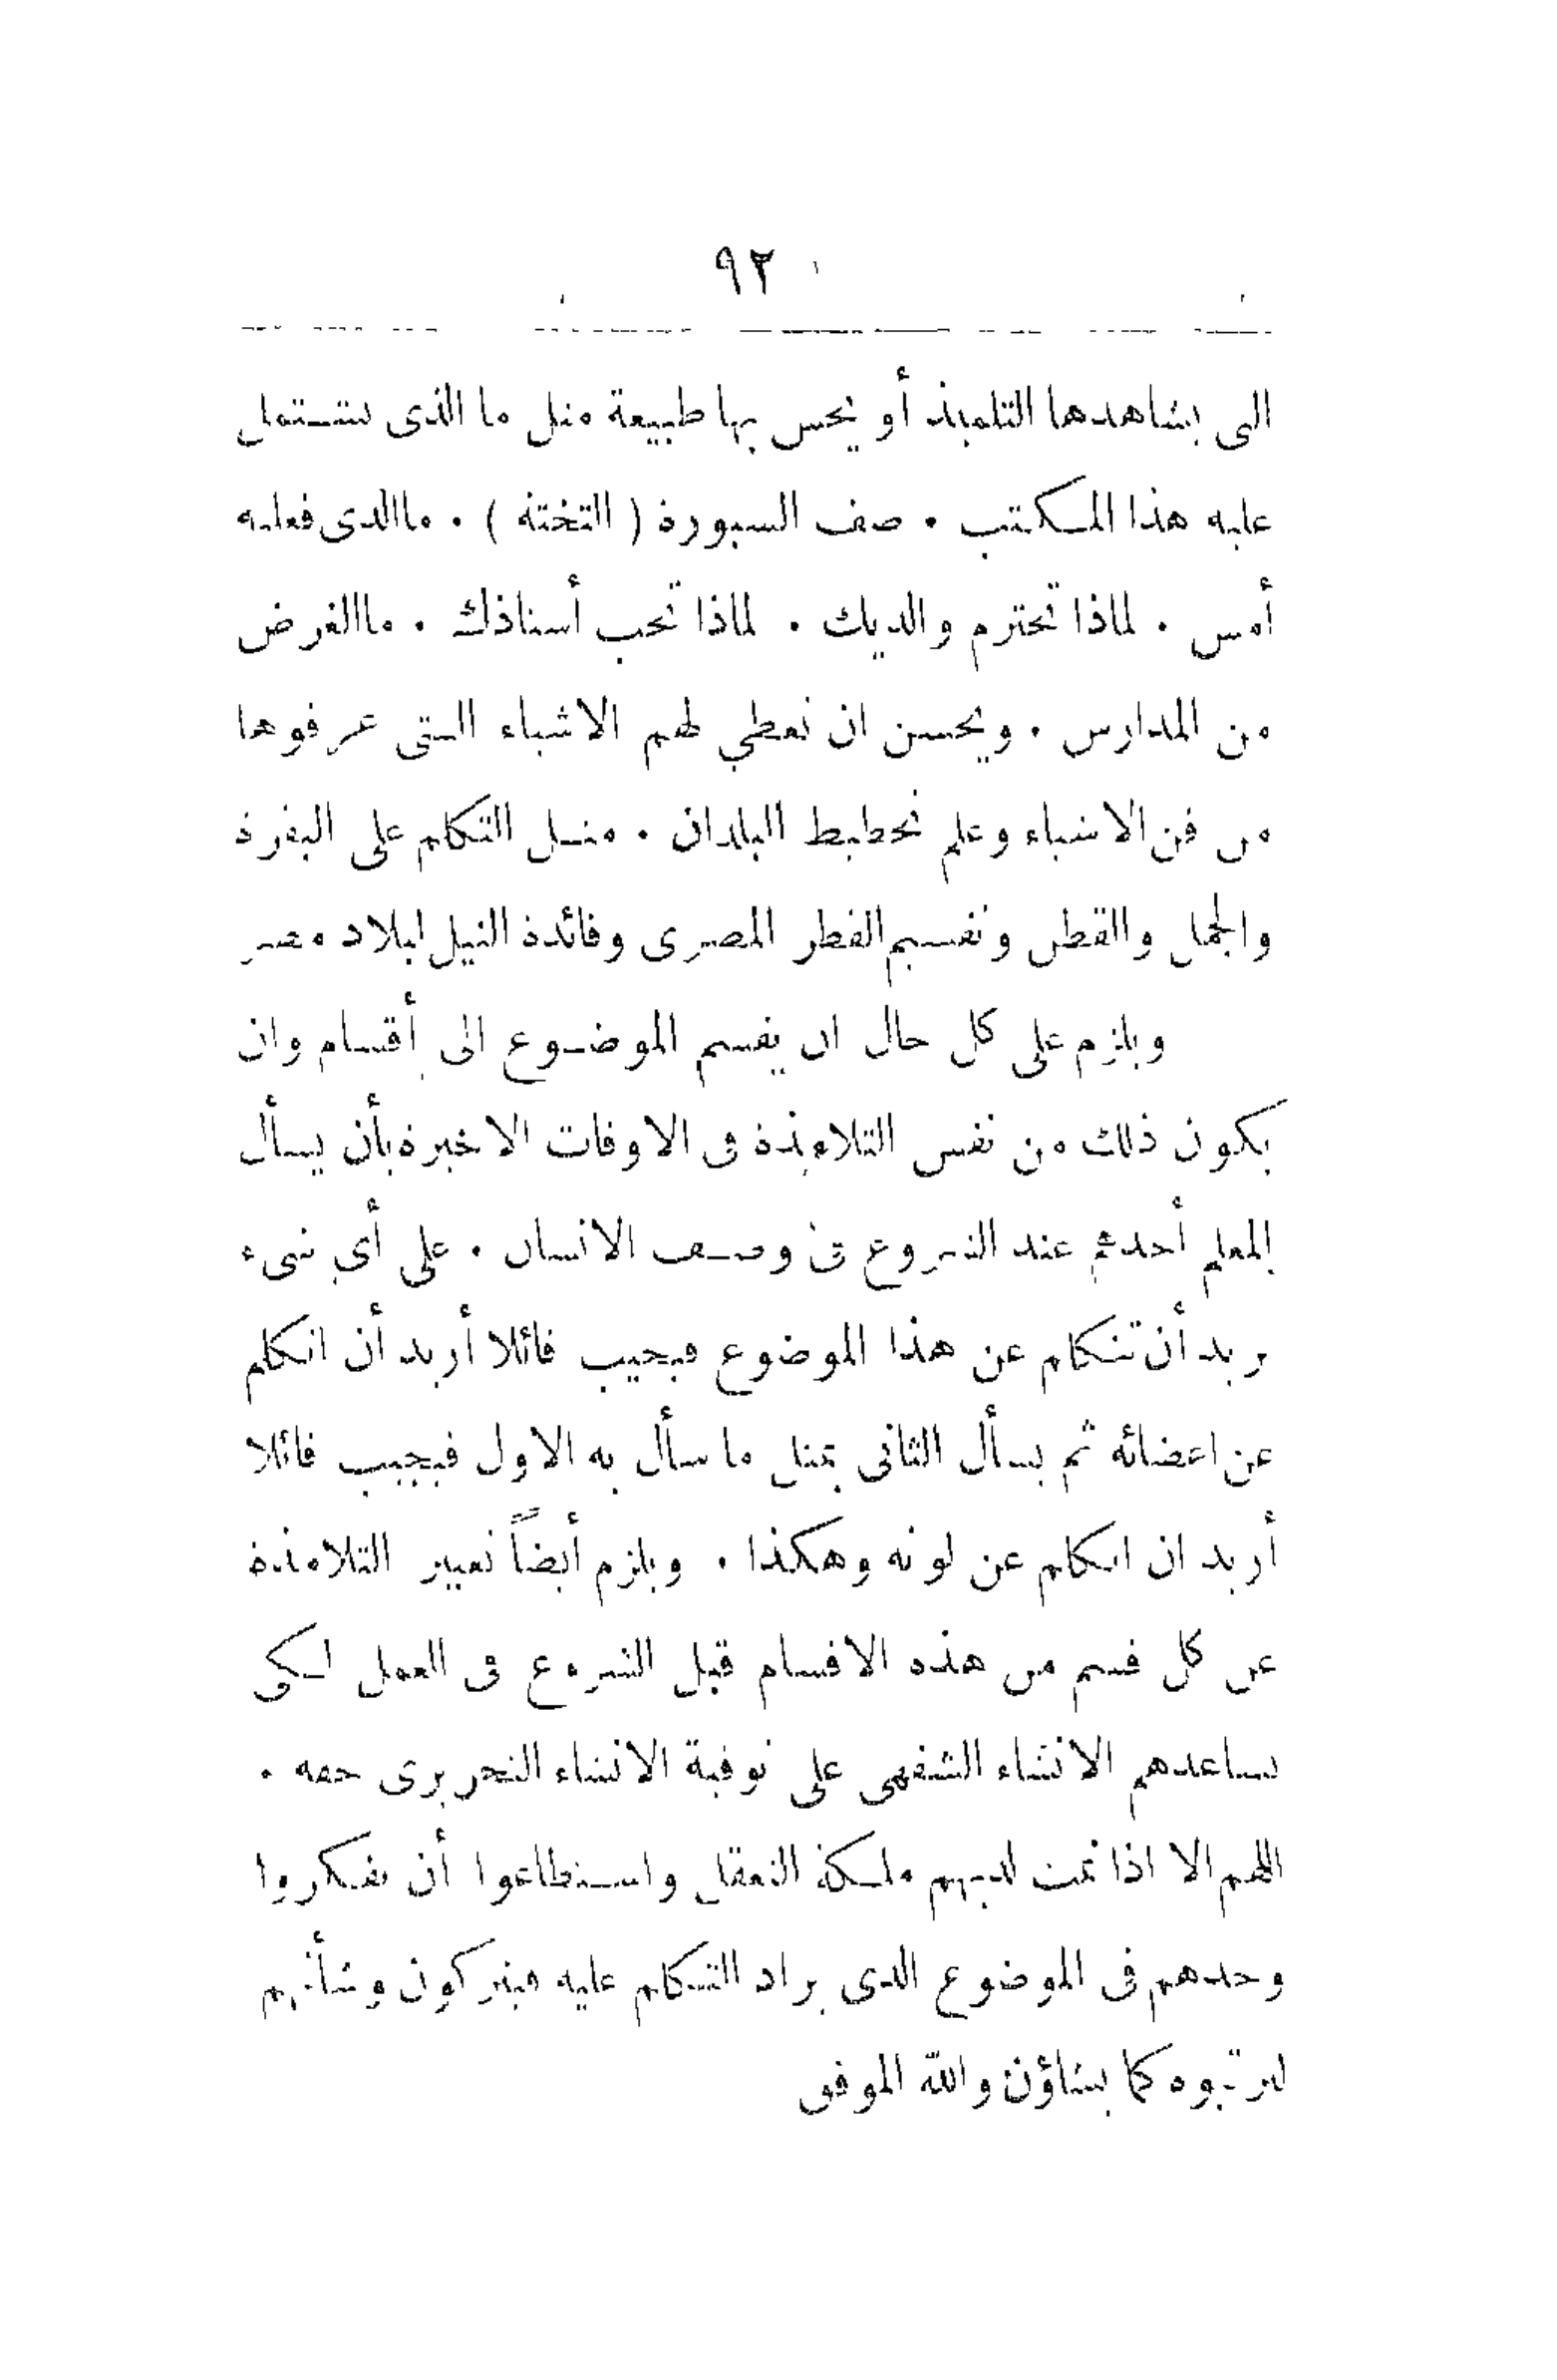 ٩٢
التى يشاهدها التلميذ أو يحس بها طبيعة مثل ما الذى يشتمل
عليه هذا المكتب . صف السبورة ( التختة ) . ما الذى فعلته
أمس . لماذا تحترم والديك . لماذا تحب أستاذك . ما الغرض
من المدارس . ويحسن ان تعطي لهم الاشياء التى عرفوها
من فن الاشياء وعلم تخطيط البلدان . مثل التكلم على البقرة
والجمل والقطن وتقسيم القطر المصرى وفائدة النيل لبلاد مصر
ويلزم على كل حال ان يقسم الموضوع الى أقسام وان
يكون ذلك من نفس التلاميذة فى الاوقات الاخيرة بأن يسأل
المعلم أحدهم عند الشروع فى وصف الانسان . على أي شىء
تريد أن تتكلم عن هذا الموضوع فيجيب قائلا أريد أن اتكلم
عن اعضائه ثم يسأل الثانى بمثل ما سأل به الاول فيجيب قائلا
أريد ان اتكلم عن لونه وهكذا . ويلزم أيضاً تعبير التلامذة
عن كل قسم من هذه الاقسام قبل الشروع فى العمل لكى
يساعدهم الانشاء الشفهى على توفية الانشاء التحريرى حقه .
اللهم الا اذا نمت لديهم ملكة التعقل واستطاعوا أن يفكروا
وحدهم فى الموضوع الذى يراد التكلم عليه فيتركون وشأنهم
ليرتبوه كما يشاؤن والله الموفق